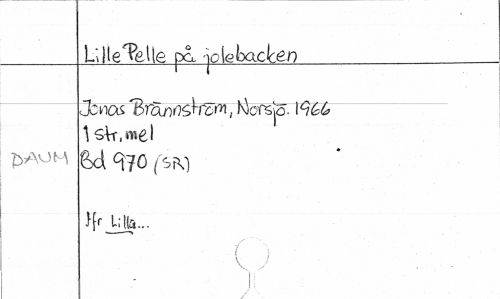 Lille Pelle på jolebacken
Jonas Brännström, Norsjö. 1966
1 str, mel
DAUM Bd 970 (SR)
Jfr Lilla...